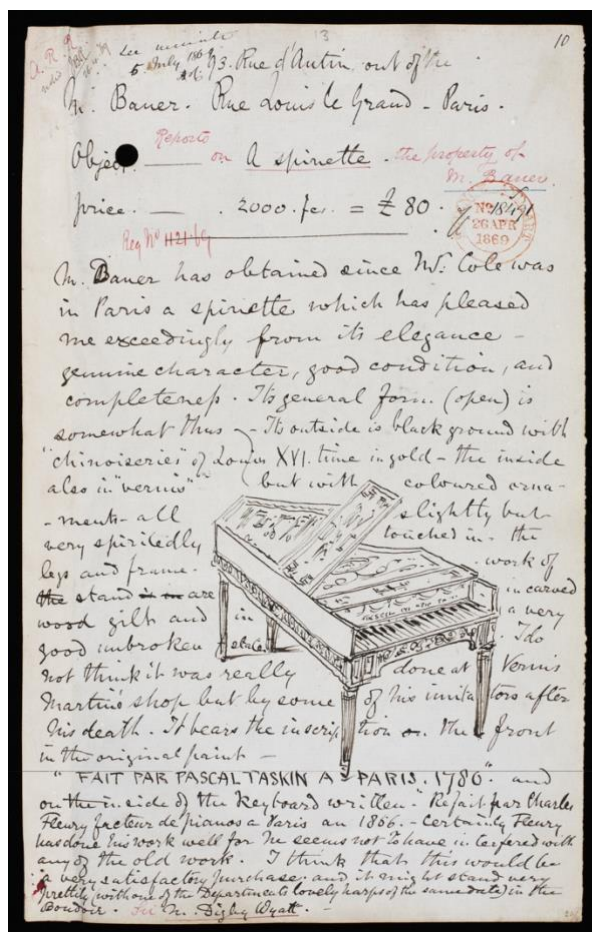 13
10
A.R.A
See minute
5 July 1869
93. Rue d'Antin out of the
M. Bauer. Rue Louis le Grand - Paris.
Reports
Object on A spinette. the property of
M. Bauer
price. — . 2000. fcs. = £80.
Nº 18491
26 APR
1869
Reg Nº 1121.69
M. Bauer has obtained since Mr. Cole was
in Paris a spinette which has pleased
me exceedingly from its elegance -
genuine character, good condition, and
completeness. Its general form (open) is
somewhat thus - Its outside is black ground with
"chinoiseries" of Louis XVI. time in gold - the inside
also in "vernis" but with coloured orna-
-ments - all slightly but
very spiritedly touched in - the
legs and frame. work of
the stand in are in carved
wood gilt and in a very
good unbroken state. I do
not think it was really done at Vernis
Martin's shop but by some of his imitators after
his death. It bears the inscription on the front
in the original paint -
"FAIT PAR PASCAL TASKIN A PARIS. 1786." and
on the inside of the keyboard written - "Refait par Charles
Fleury facteur de pianos a Paris an 1866. - Certainly Fleury
has done his work well for he seems not to have interfered with
any of the old work. I think that this would be
a very satisfactory purchase; and it might stand very
prettily (with one of the Departments lovely harps of the same date) in the
Boudoir. M. Digby Wyatt.